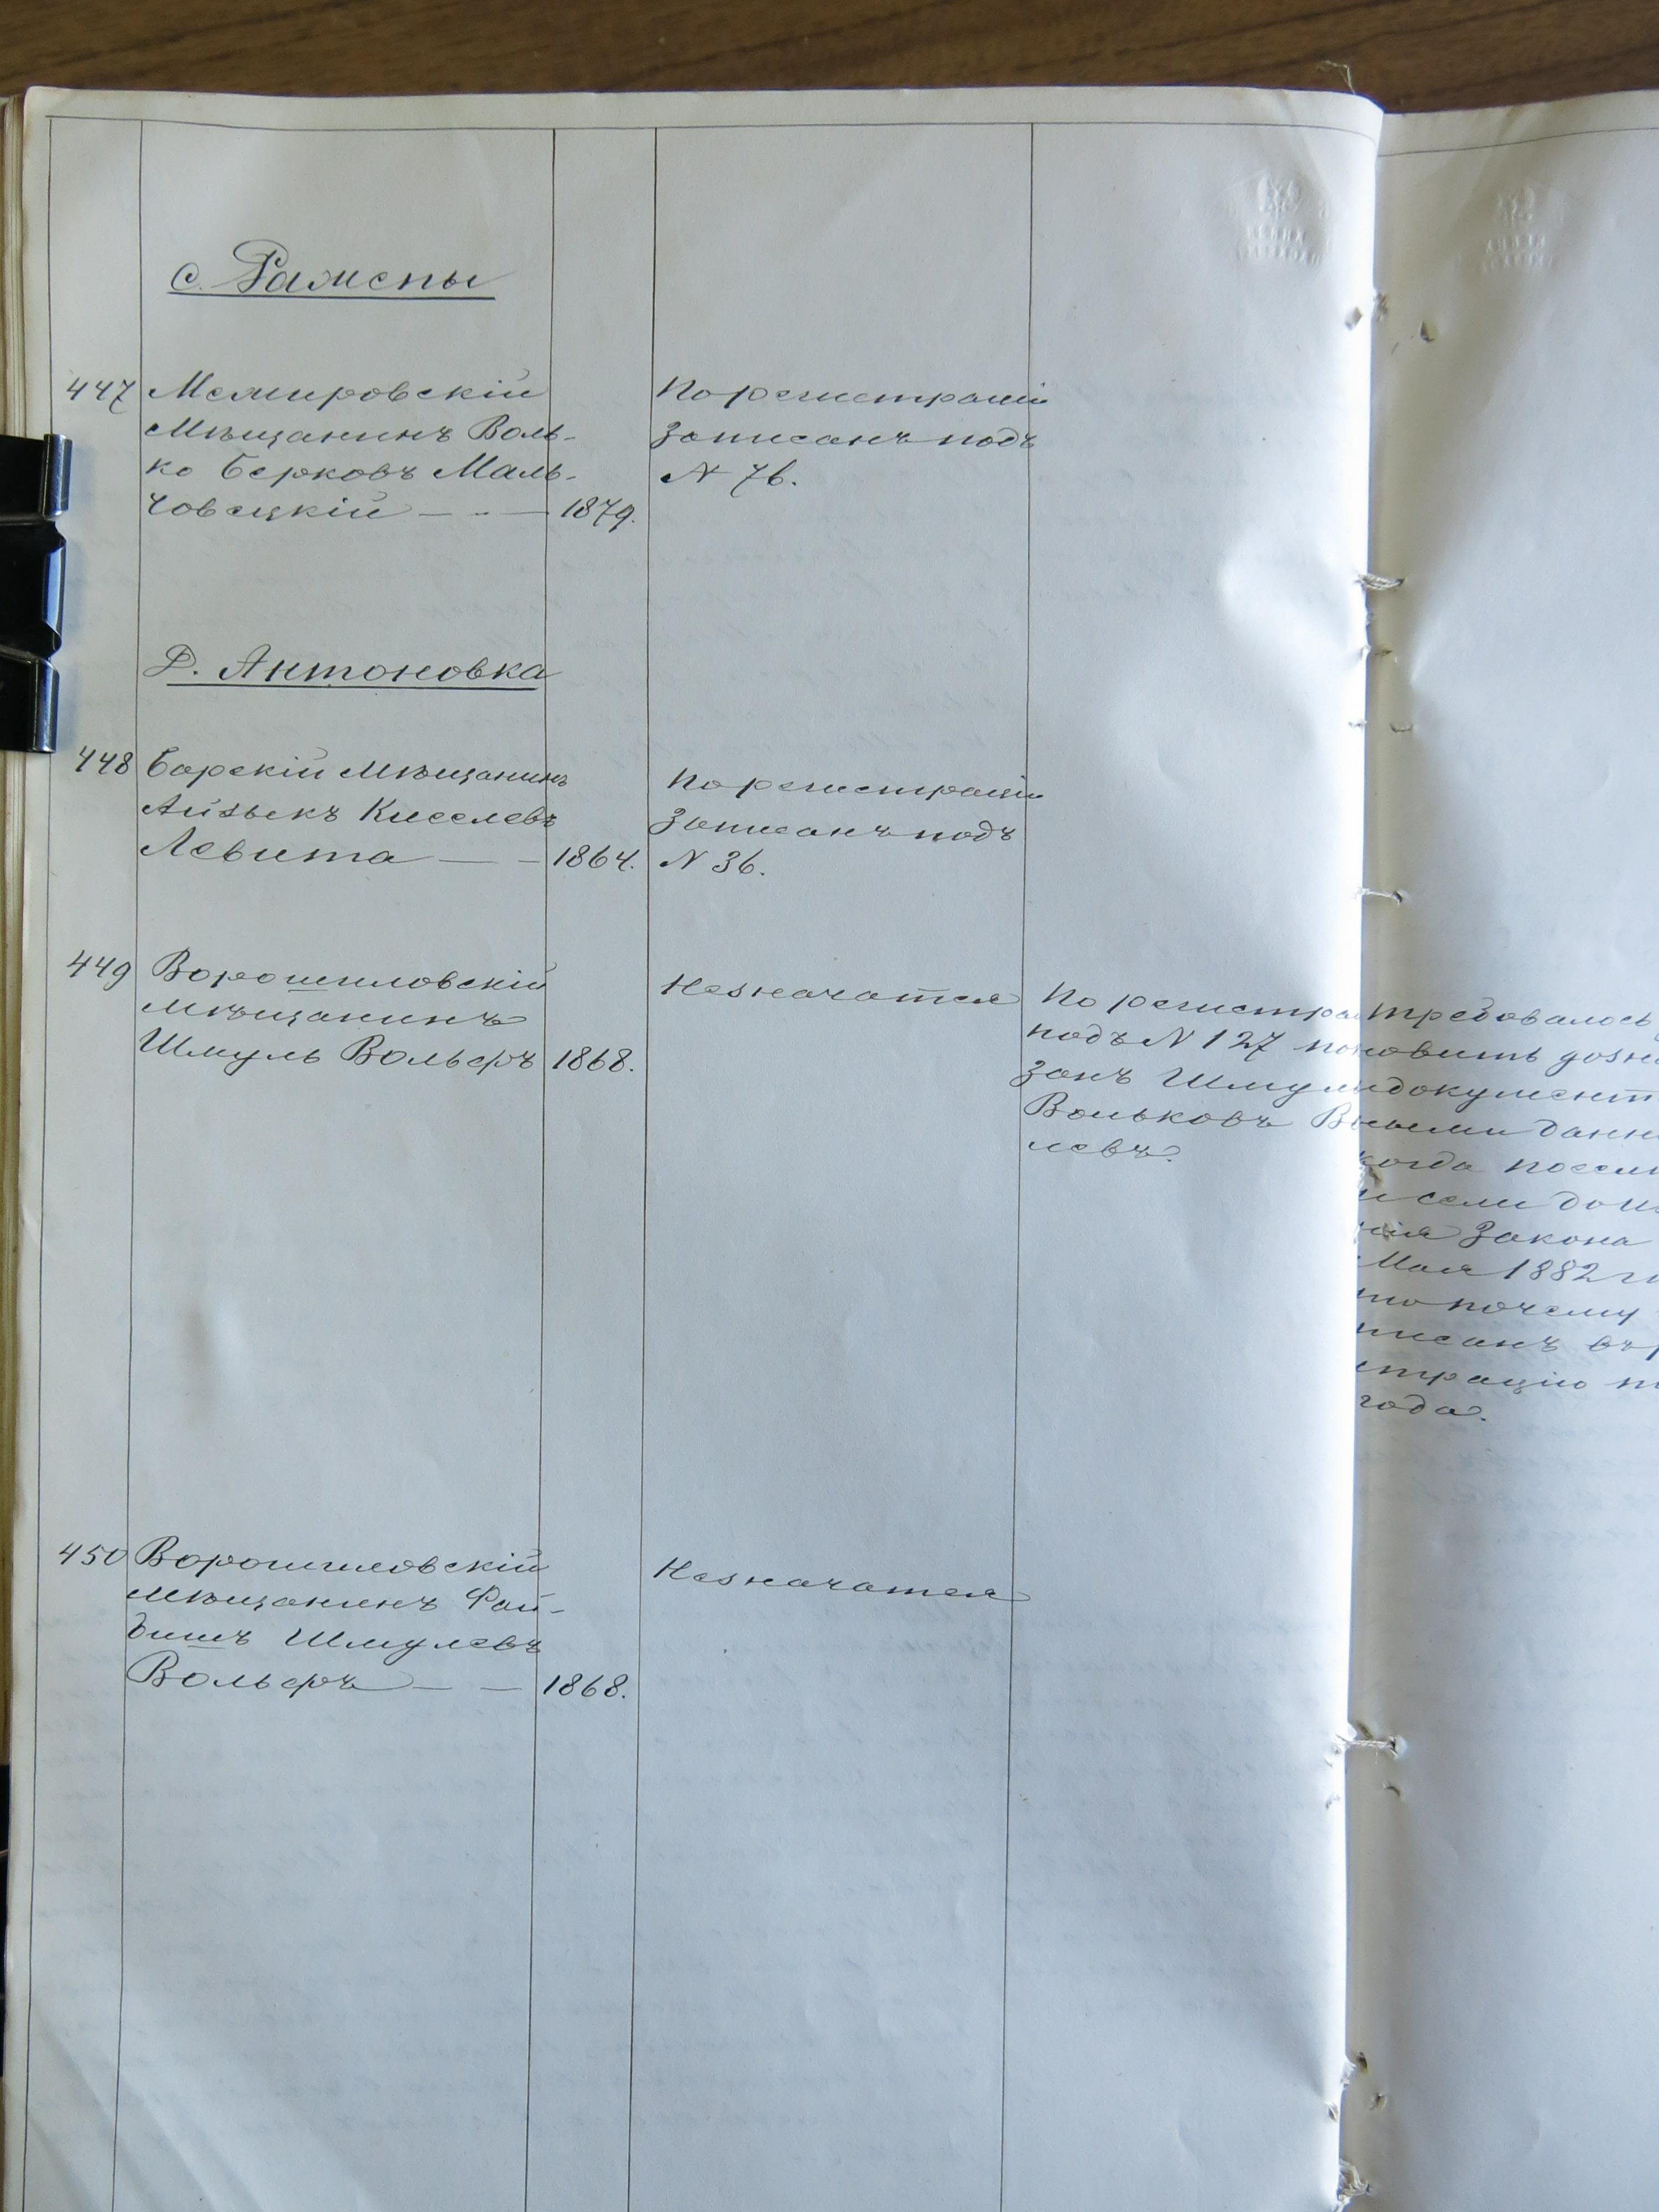 с. Ражепы
447 Мемировскій
Мѣщанинъ Воль-
ко Берковъ Маль-
човецкій — — 1879.
По регистраціи
записанъ подъ
N 76.
Д. Антоновка
448 Барскій Мѣщанинъ
Айзыкъ Киселевъ
Левита — — 1864.
По регистраціи
записанъ подъ
N 36.
449 Ворошиловскій
мѣщанинъ
Шмуль Вольфъ 1868.
Незначатся
По регистра
подъ N 127 по
занъ Шмул
Вольковъ В
левъ.
требовалось
новить дозн
документ
выми данн
когда посел
и если до из
нія Закона
Мая 1882 г
то почему
писанъ въ р
страцію
года.
450 Ворошиловскій
мѣщанинъ Фай-
бишъ Шмулевъ
Вольфъ — — 1868.
Незначатся